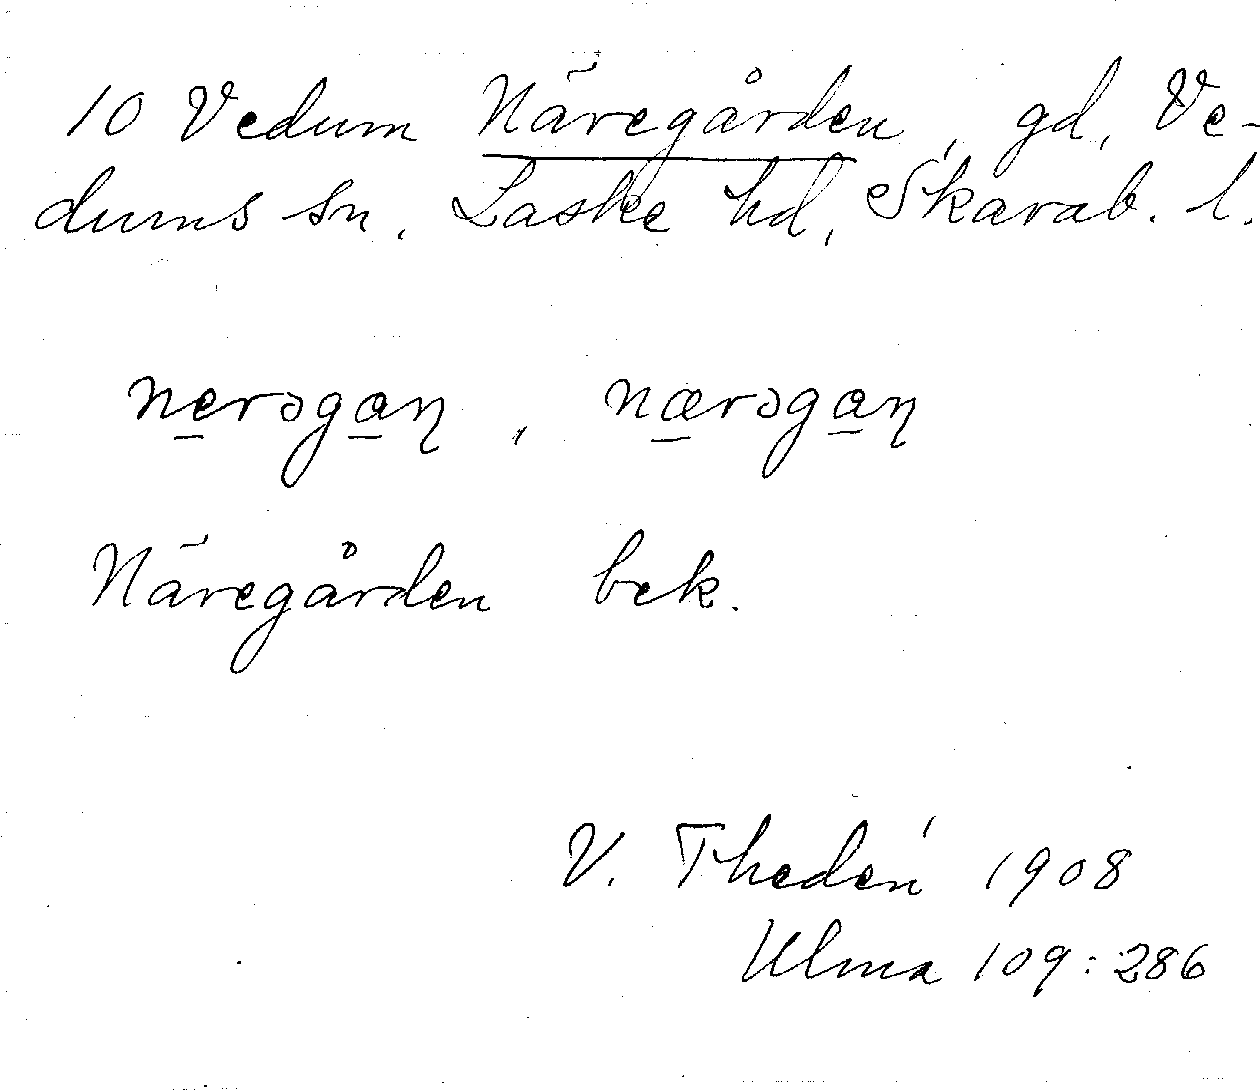 10 Vedum Näregården, gd, Ve-
dums sn, Laske hd, Skarab. l.
nerəgaɳ, nærəgaɳ
Näregården bek.
V. Thedén 1908
Ulma 109:286